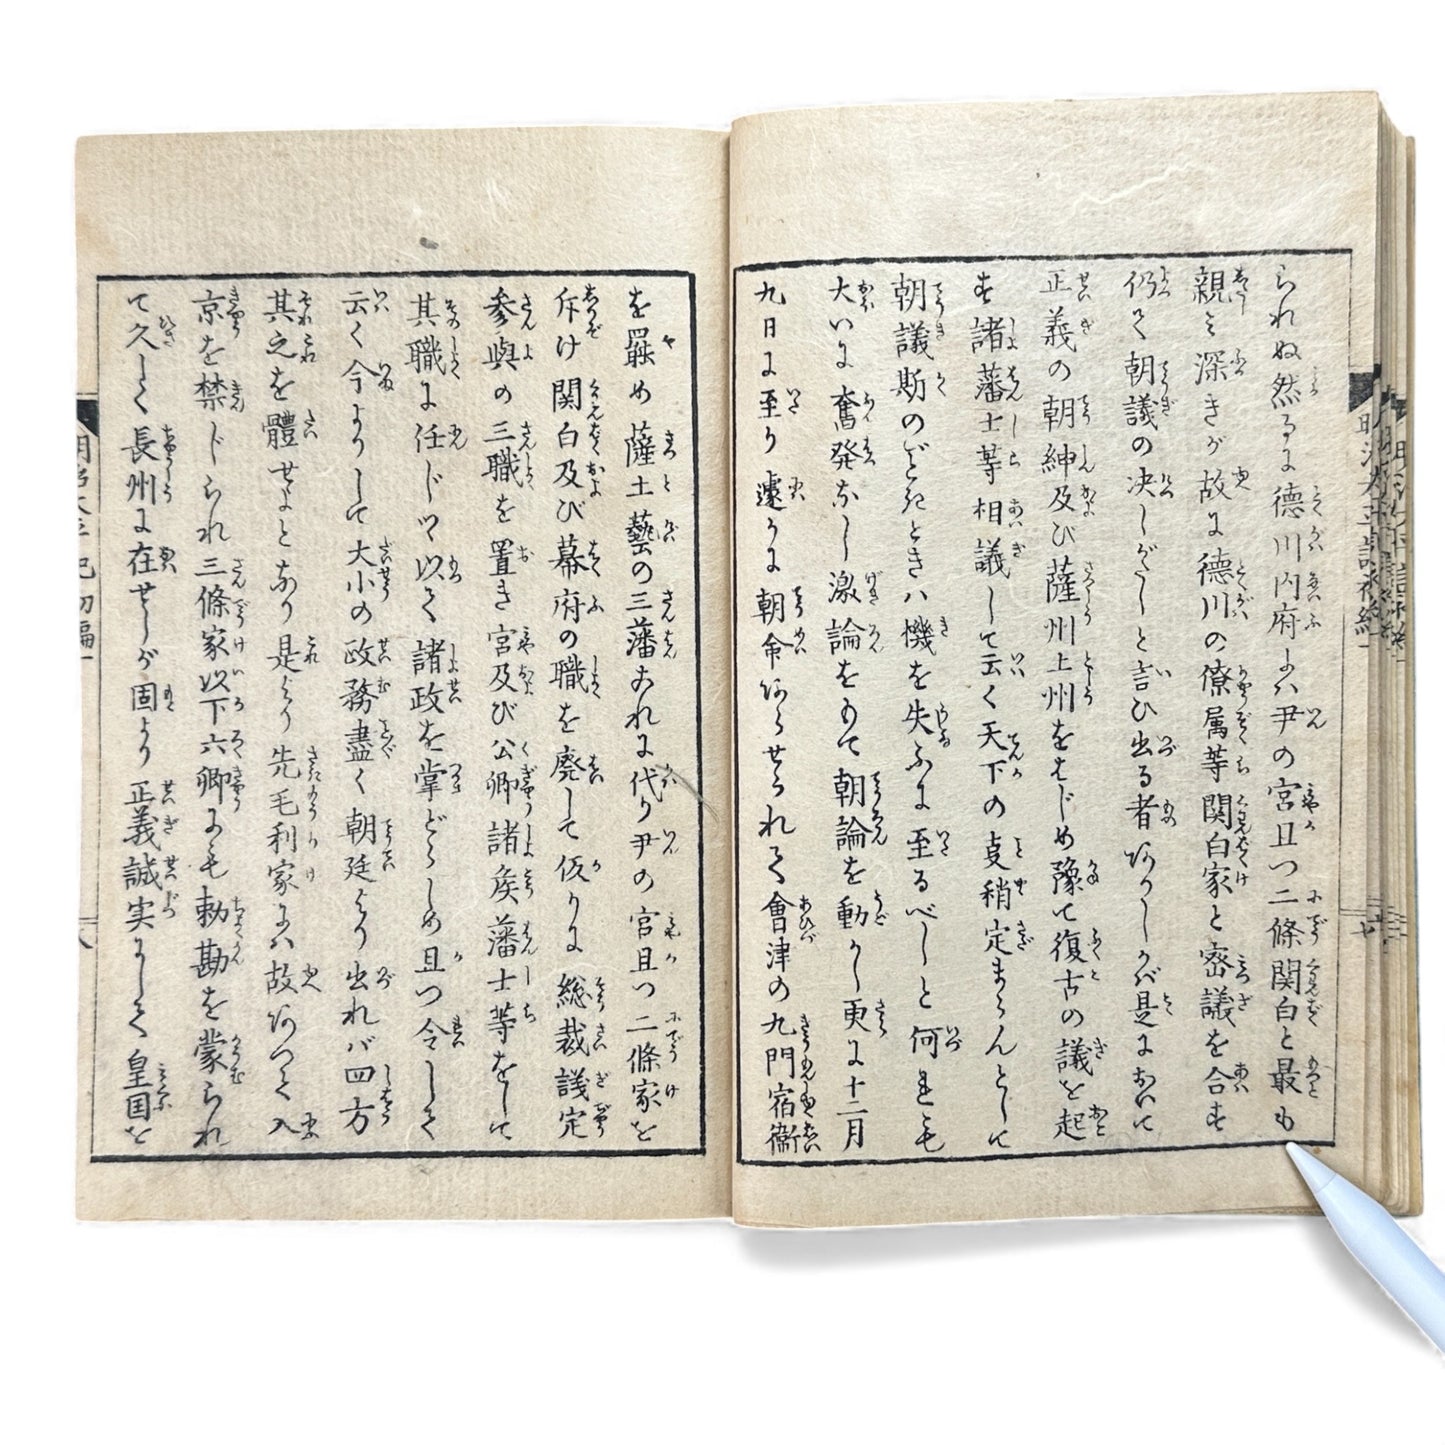 られぬ然るに徳川内府ハ尹の宮且つ二條関白と最も
親ミ深きが故に徳川の僚属等関白家と密議を合す
仍て朝議の决しがたしと言ひ出る者ありしかバ是に於て
正義の朝紳及び薩州土州をはじめ豫て復古の議を起
す諸藩士等相議して云く天下の事稍定まらんとして
朝議斯のごときハ機を失ふに至るべしと何れも
大いに奮発なし激論をもて朝論を動かし更に十二月
九日に至り遽かに朝命あらせられて會津の九門宿衛
を罷め薩土藝の三藩これに代り尹の宮且つ二條家を
斥け関白及び幕府の職を廃して仮りに総裁議定
参與の三職を置き宮及び公卿諸矦藩士等をして
其職に任じて以て諸政を掌どらしめ且つ令して
云く今よりして大小の政務盡く朝廷より出れバ四方
其之を體せよとなり是より先毛利家にハ故ありて入
京を禁じられ三條家以下六卿にも勅勘を蒙られ
て久しく長州に在せしが固より正義誠実にして皇国を
明治太平記初編一
八
明治太平記初編一
七